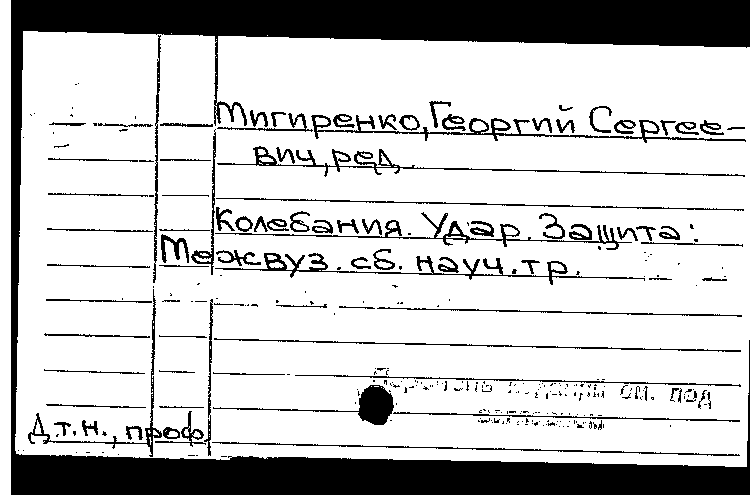 Мигиренко, Георгий Сергее-
вич, ред.
Колебания. Удар. Защита:
Межвуз. сб. науч. тр.
Перечень изданий см. под
Д.т.н., проф.